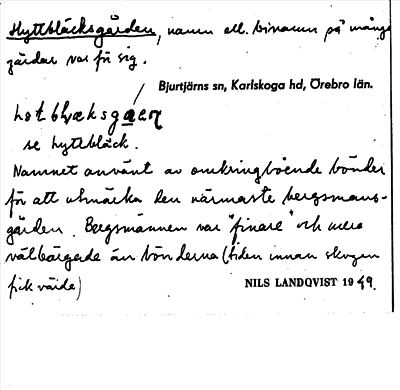 Hyttbläcksgården, namn ell. binamn på många
gårdar var för sig.
Bjurtjärns sn, Karlskoga hd, Örebro län.
se hyttbläck.
Namnet använt av omkringboende bönder
för att utmärka den närmaste bergsmans-
gården. Bergsmännen var "finare" och mera
välbärgade än bönderna (tiden innan skogen
fick värde)
NILS LANDQVIST 1949.